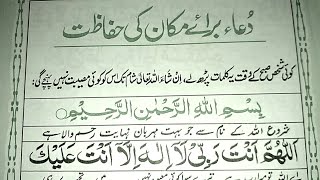 دُعاء برائے مکان کی حفاظت
کوئی شخص صبح کے وقت یہ کلمات پڑھ لے، اِنْ شَاءَ اللہُ تعالیٰ شام تک اس کو کوئی مصیبت نہیں پہنچے گی:
بِسْمِ اللهِ الرَّحْمٰنِ الرَّحِيْمِ
شروع اللہ کے نام سے جو بہت مہربان نہایت رحم والا ہے
اَللّٰهُمَّ اَنْتَ رَبِّىْ لَاۤ اِلٰهَ اِلَّاۤ اَنْتَ عَلَيْكَ